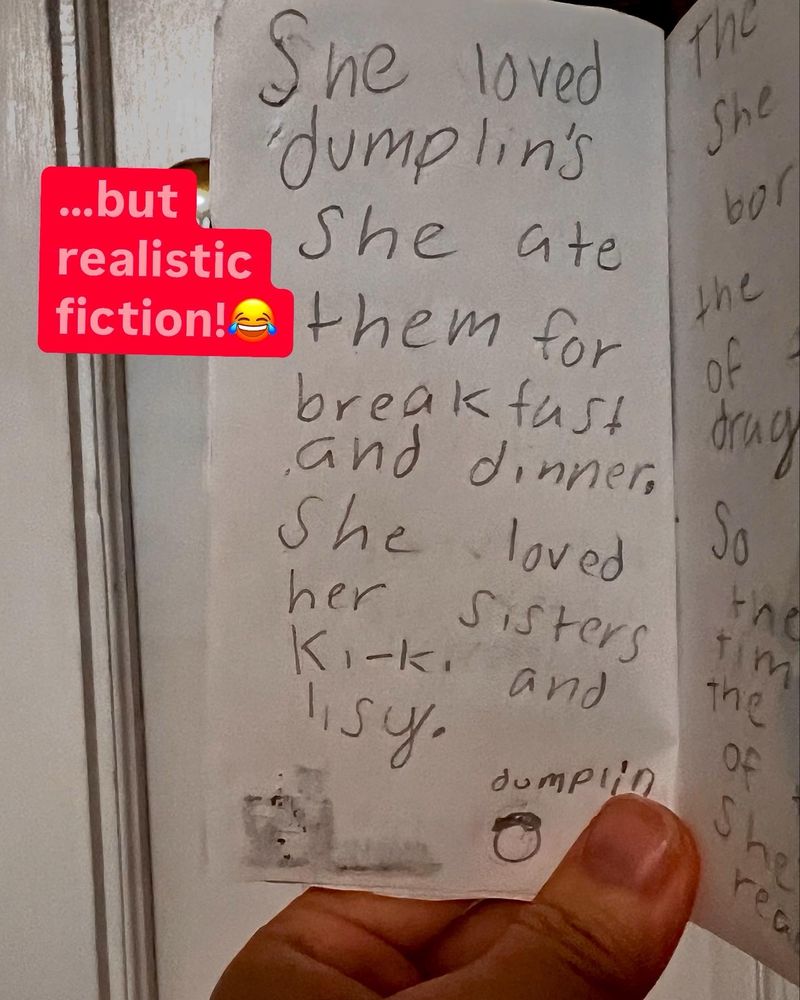 ...but
realistic
fiction!😂
She loved
'dumplin's
She ate
them for
breakfast
and dinner.
She loved
her sisters
Ki-ki and
lisy.
dumplin
The
She
bor
the
of
drag
So
the
tim
the
of
She
rea